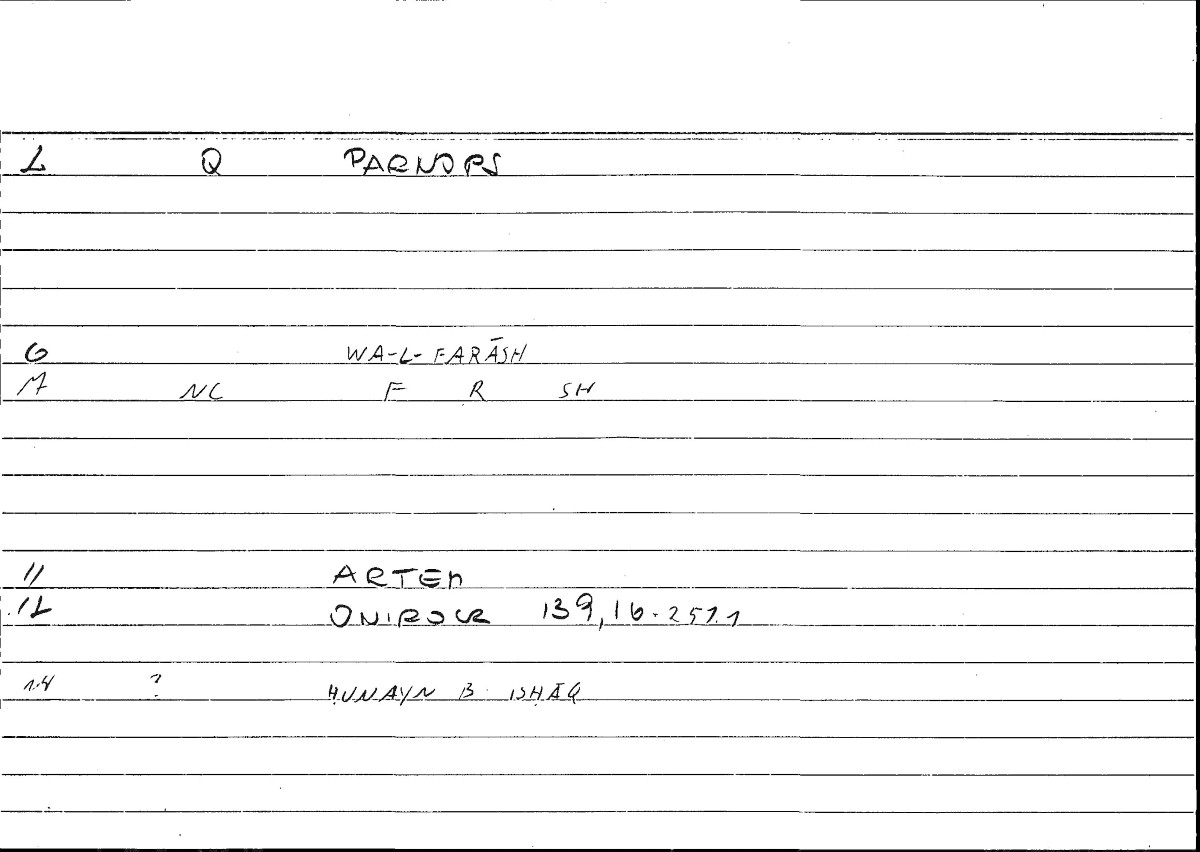 L Q PARNOPS
6 WA-L-FARĀSH
M NC F R SH
11 ARTEM
12 ONIROCR 139,16-257.1
14 ? ḤUNAYN B ISḤĀQ